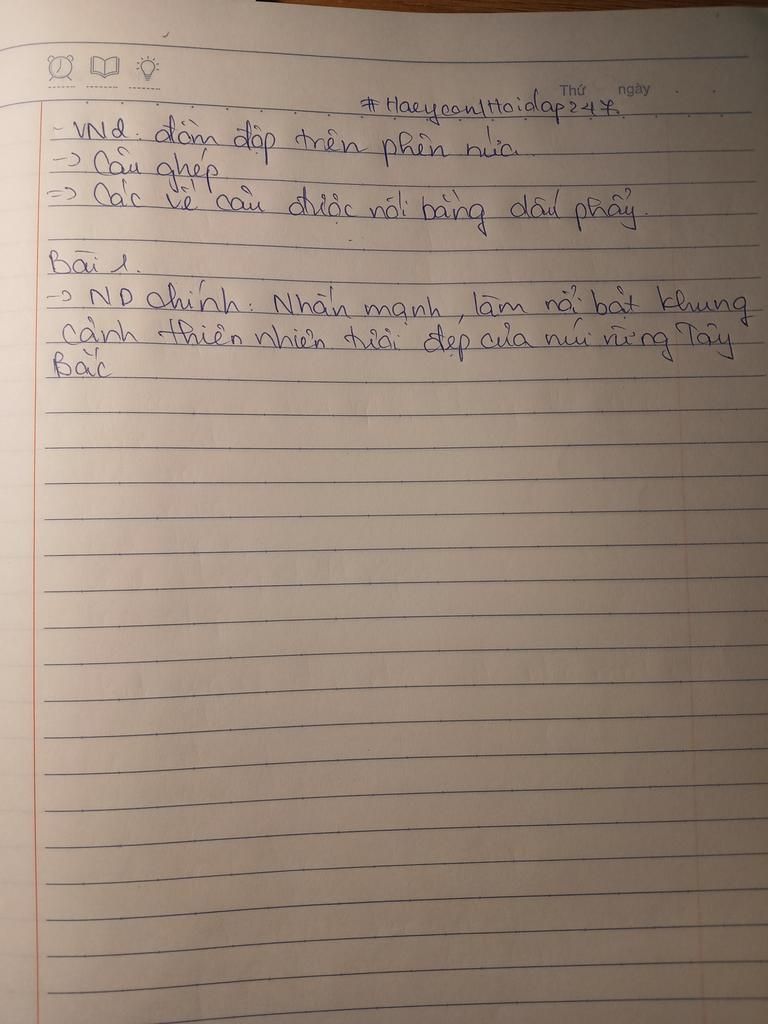 Thứ ngày
#Haeyeon1Hoidap247
- VN2: đầm đập trên phên nứa
-> Câu ghép
=> Các vế câu được nối bằng dấu phẩy.
Bài 1.
-> ND chính: Nhấn mạnh, làm nổi bật khung
cảnh thiên nhiên tươi đẹp của núi rừng Tây
Bắc